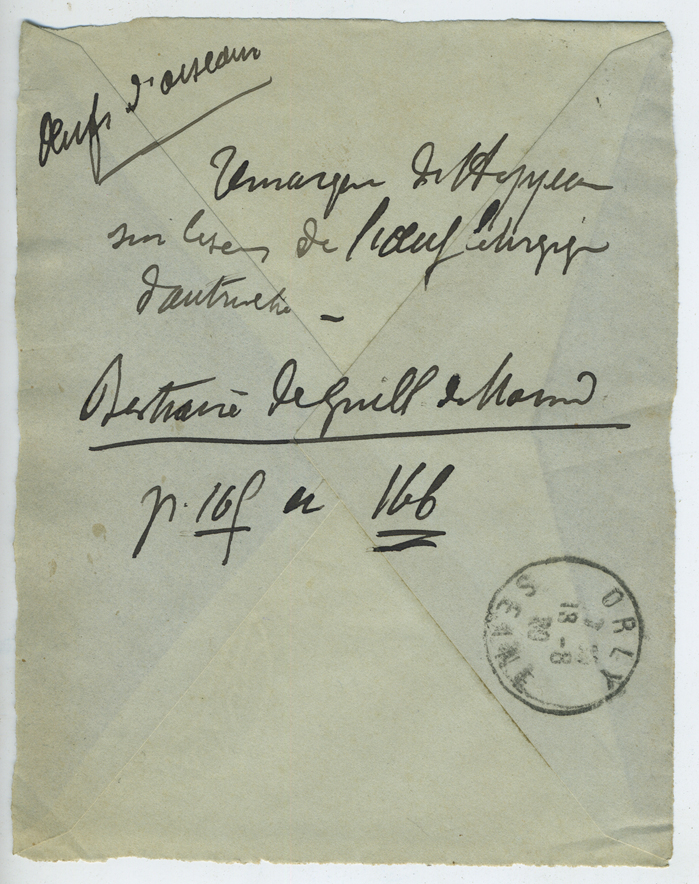 Œufs d'oiseaux
remarque de Hippeau
sur le sens de l'œuf
d'autruche –
Bestiaire de Guill de Normd
p. 165 et 166
ORLY
SEINE
18 -8